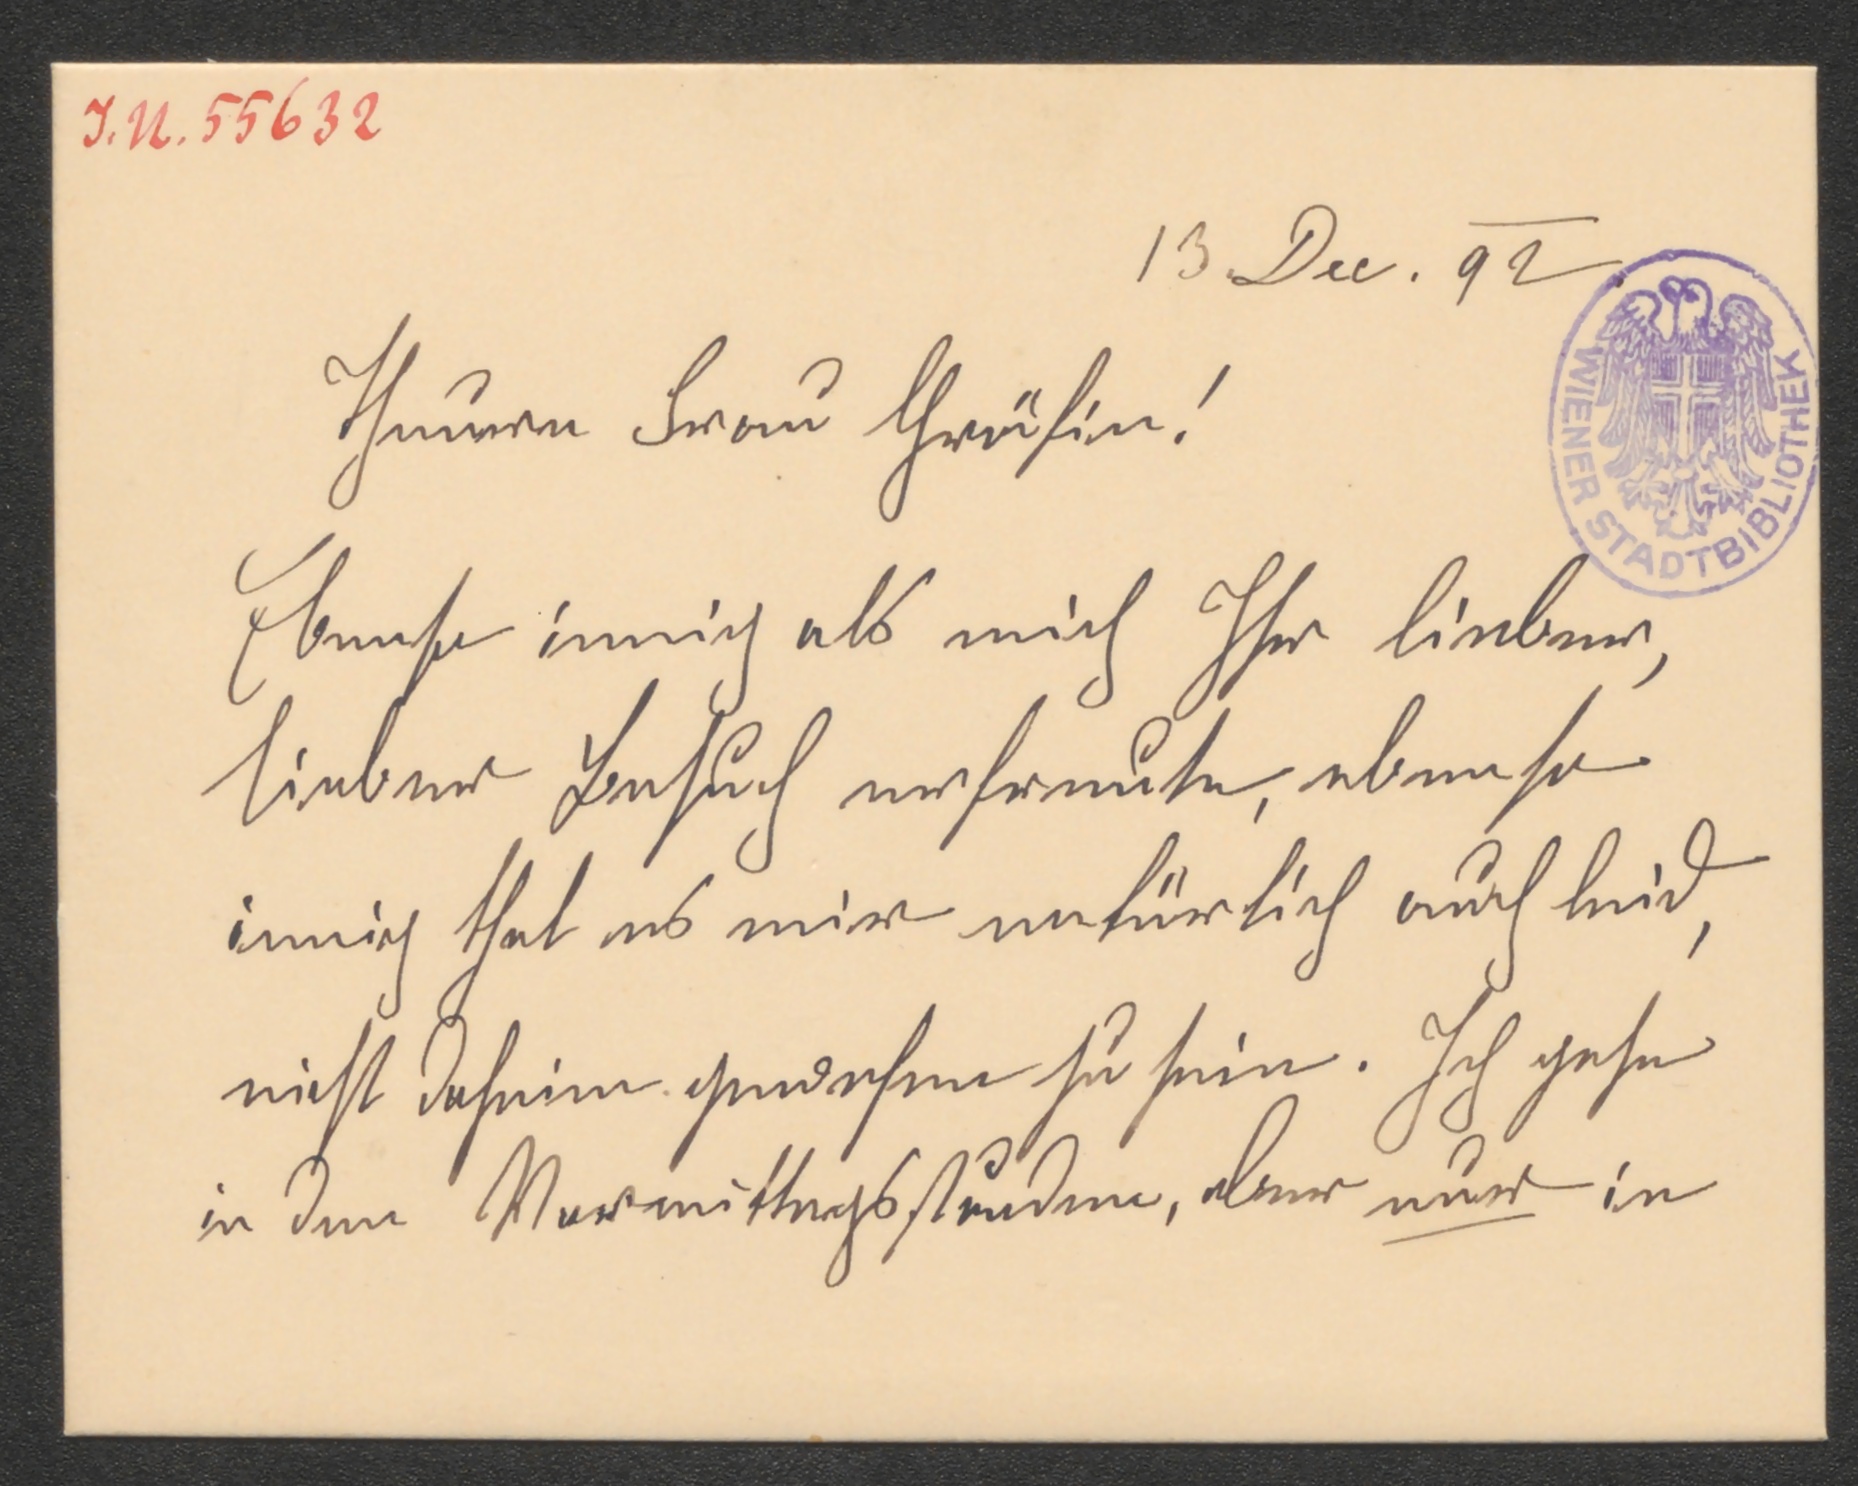 J.N. 55632
13. Dec. 92
WIENER STADTBIBLIOTHEK
Theuere Frau Gräfin!
Ebenso innig als mich Ihr lieber,
lieber Besuch erfreute, ebenso
innig that es mir natürlich auch leid,
nicht daheim gewesen zu sein. Ich gehe
in den Vormittagsstunden, aber nur in